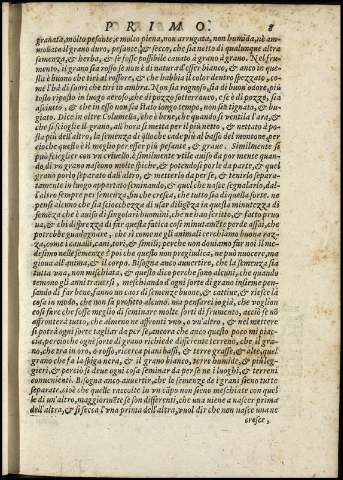 PRIMO. 8
granata, molto pesante, & molto piena, non arrugata, non humida, nè ammollate il grano duro, pesante, & secco, che sia netto di qualunque altra
semenza, & herba, & se fosse possibile cauato à grano à grano. Nel frumento, il grano sia rosso se non è di natura d'esser bianco, & anco in questa è buono che tiri al rossore, & che habbia il color dentro spezzato, come l'hà di fuori che tiri in ambra. Non sia rognoso, sia di buon odore, più
tosto riposto in luogo aeroso, che di pozzo sotterraneo, e se è di pozzo, sia
asciutto, & che in esso non sia stato longo tempo, non sia tignato, & bugiato. Dice in oltre Columella, che è bene, che quando si ventila l'ara, &
che si scioglie il grano, all'hora si metta per il più netto, & nettato da posta più dell'altro, la semenza di quello che và de più al basso del montone, perciochè questo è il meglio per esser più pesante, & grane. Similmente si
può sciegliere con vn criuello. è similmente vtile auiso da por mente quando, di vn grano nascono molte spiche, & potendosi por le da parte, & quel
grano porlo separato dall'altro, & metterlo da per se, & tenirlo separatamente in luogo appartato seminando, & quel che nasce segnalarlo, dall'altro sempre per semenza, fin che cresca, che tutto sia di quella sorte. ne
penso alcuno che sia sciocchezza di usar diligeza in questa minutezza di
semeza che è auiso di singolari huomini, che ne han scritto, & fatto proua, & chi disprezza di far questa fatica così minutamete perde assai, che
potrebbe guadagnare, che sì come ne gli animali cerchiamo buona razza, come i caualli, cani, tori, & simili, perche non doniamo far noi il medesimo nelle semenze? poi che questo non pregiudica, ne può nuocere, ma
gioua all'anima, & il corpo. Bisogna anco auuertire, che la semenza sia
tutta vna, non mischiata, & questo dico perche sono alcuni, che quando
temono gli anni trauersi, meschiando d'ogni sorte di grano insieme pensando di far bene, fanno un caos di semenze buone, & cattiue, & riesce la
cosa in modo, che non fa profitto alcuno. ma pensarei io già, che voglion
così fare che fosse meglio di seminare molte sorti di frumento, acciò se nō
affronterà tutto, che almeno ne affronti vno, o vn'altro, & nel mettere
si potrà ogni sorte tagliar da per se, ancorche anco questo poco mi piaccia, perciochè ogni sorte di grano richiede differente terreno, che il grano, che tra in oro, ò rosso, ricerca piani bassi, & terre grasse, & alte, quel
grano che fa la spiga nera, & il grano bianco, terre humide, & più leggieri, & perciò si deue ogni cosa seminar da per se ne i luoghi, & terreni
conuenienti. Bisogna anco auuertir, che le semenze de i grani sieno tutte
separate, cioè che quelle raccolte in vn capo non sieno meschiate con quelle di vn'altro, maggiormēte se son differenti, che una viene a nascer prima
dell'altra, & si secca l'vna prima dell'altra, vuol dir che non nasce una ne
cresce,